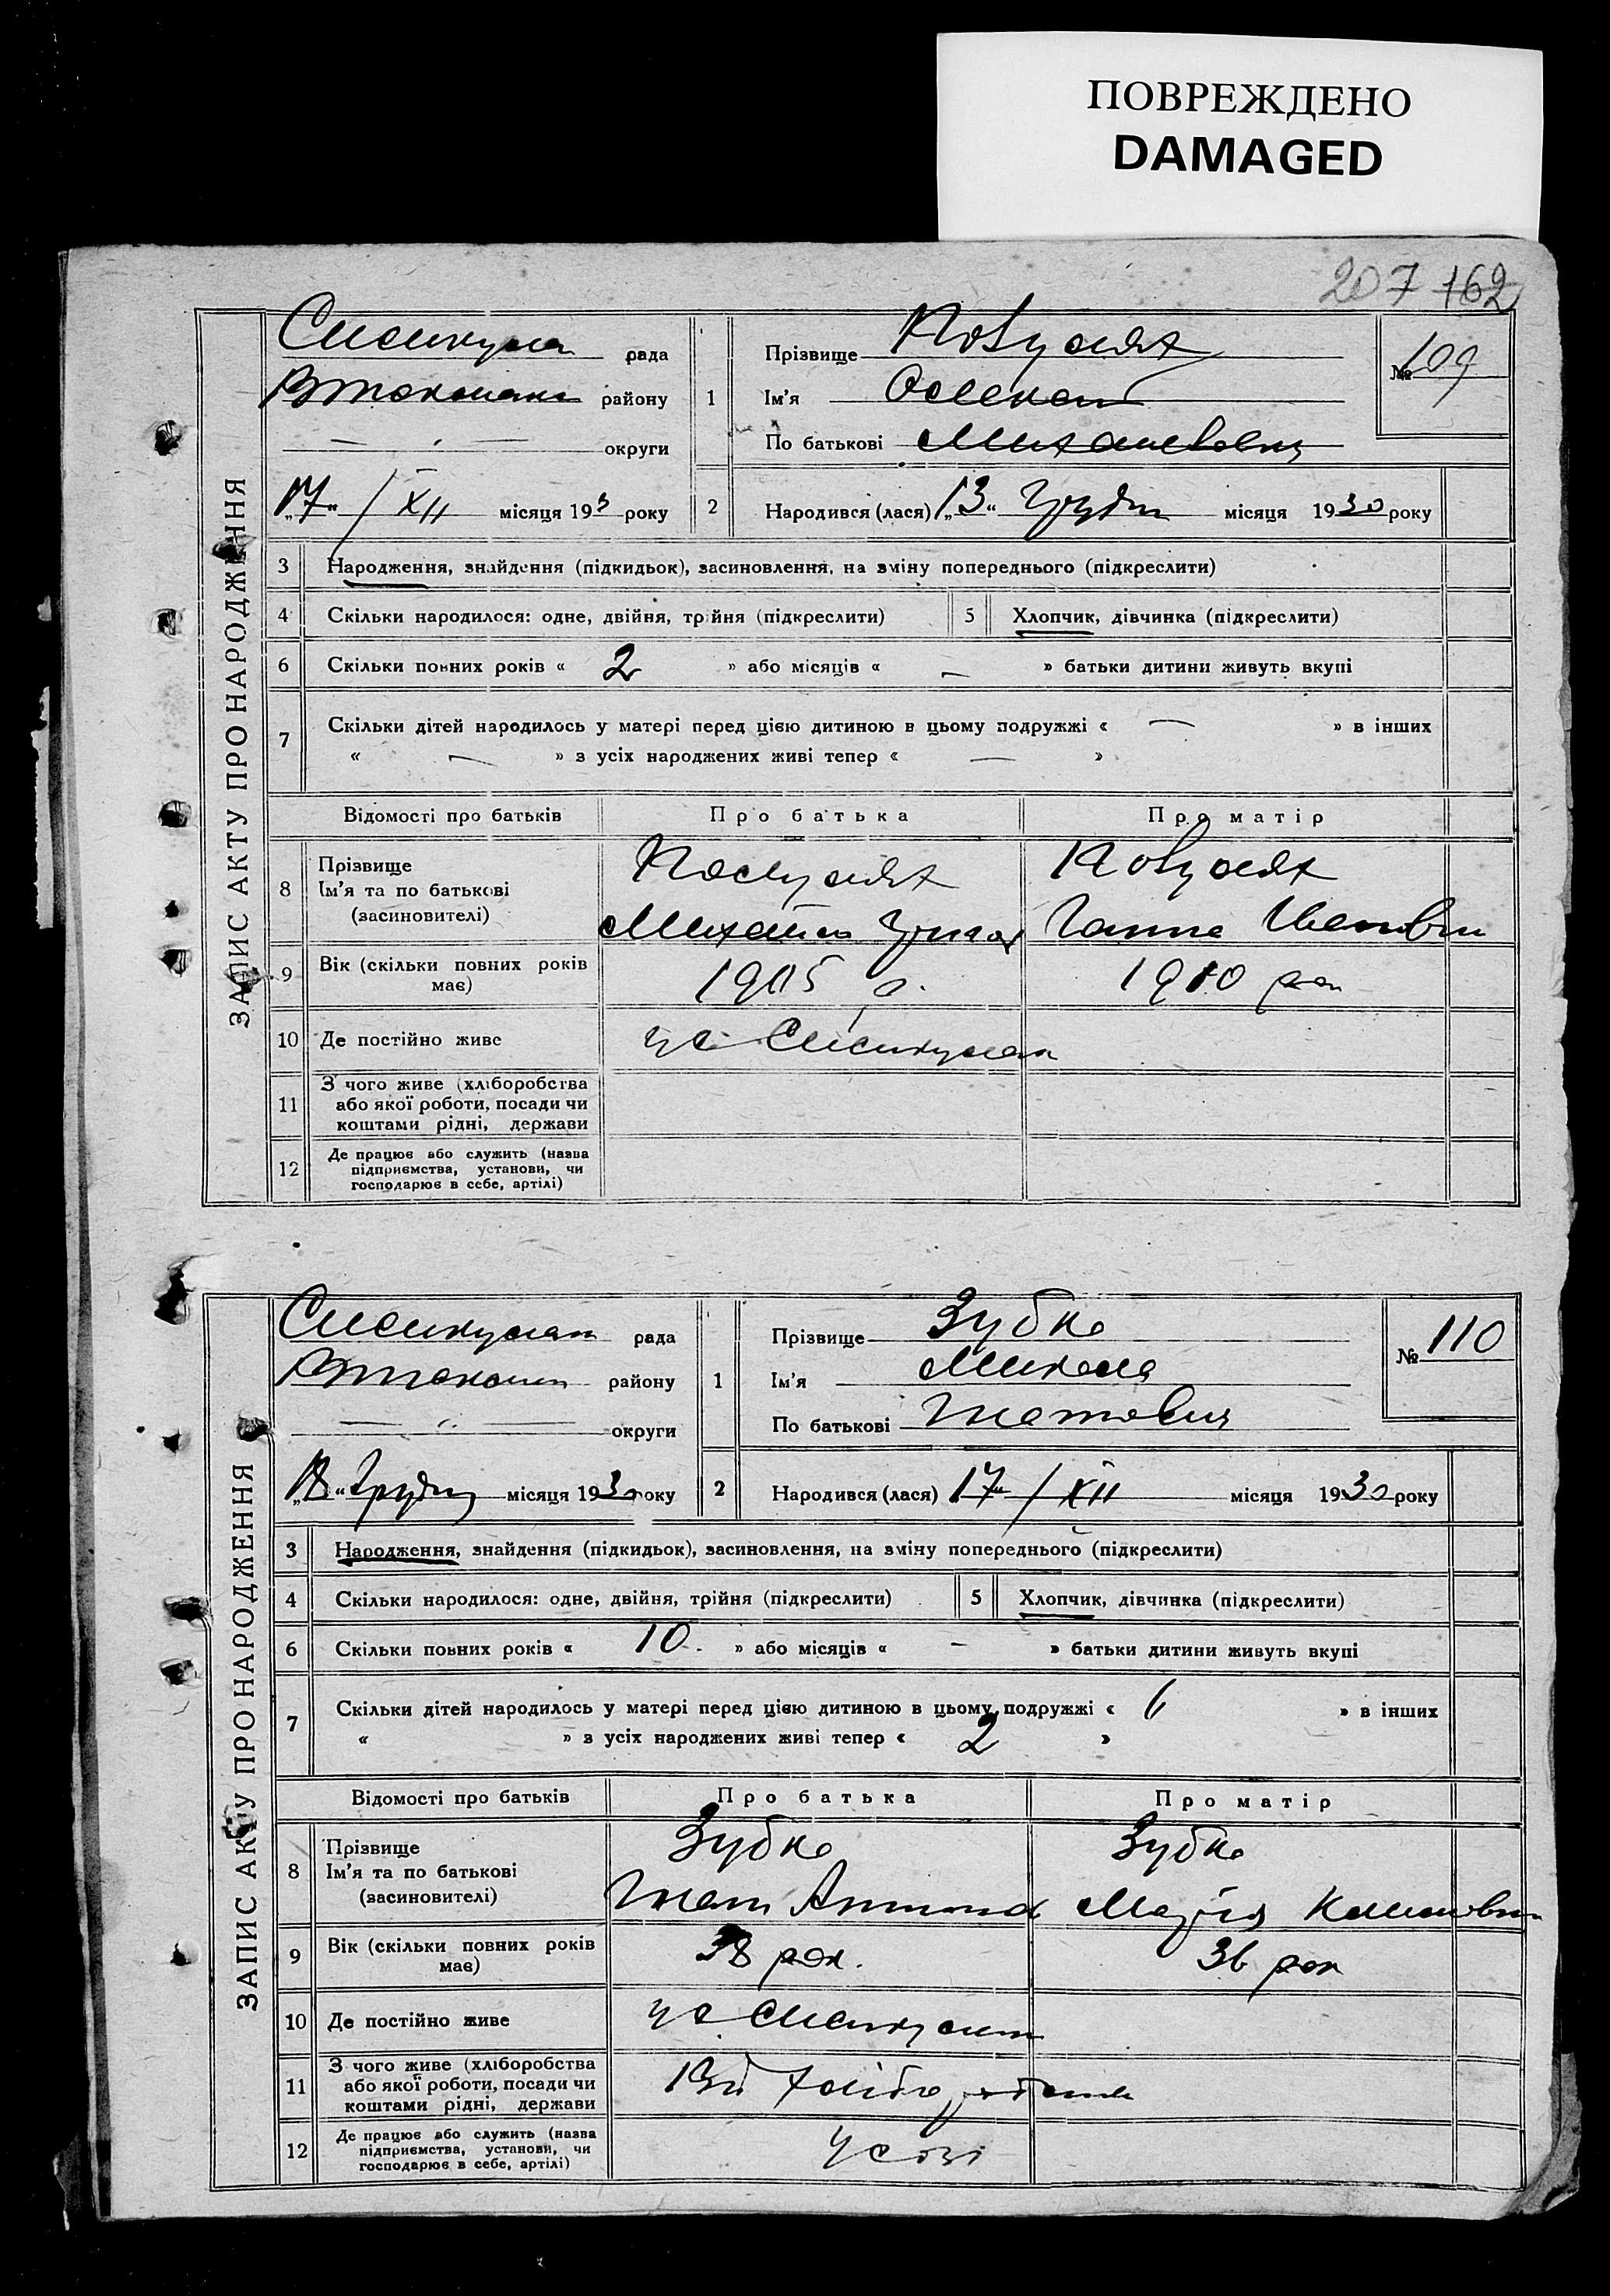 ПОВРЕЖДЕНО
DAMAGED
207 162
ЗАПИС АКТУ ПРО НАРОДЖЕННЯ
рада
району
округи
„17“ / XII місяця 193 року
1
Прізвище
Ім'я
По батькові
№ 109
2
Народився (лася) „13“ Грудня місяця 1930 року
3 Народження, знайдення (підкидьок), засиновлення, на зміну попереднього (підкреслити)
4 Скільки народилося: одне, двійня, трійня (підкреслити)
5 Хлопчик, дівчинка (підкреслити)
6 Скільки повних років « 2 » або місяців « — » батьки дитини живуть вкупі
7 Скільки дітей народилось у матері перед цією дитиною в цьому подружжі « — » в інших
« — » з усіх народжених живі тепер « — »
Відомості про батьків Про батька Про матір
8 Прізвище
Ім'я та по батькові
(засиновителі)
Михайло Ганна Іванівна
9 Вік (скільки повних років
має)
1905 р. 1910 рок
10 Де постійно живе
11 З чого живе (хліборобства
або якої роботи, посади чи
коштами рідні, держави
12 Де працює або служить (назва
підприємства, установи, чи
господарює в себе, артілі)
ЗАПИС АКТУ ПРО НАРОДЖЕННЯ
рада
району
округи
„18“ Грудня місяця 1930 року
1
Прізвище Зубко
Ім'я Микола
По батькові
№ 110
2
Народився (лася) „17“ / XII місяця 1930 року
3 Народження, знайдення (підкидьок), засиновлення, на зміну попереднього (підкреслити)
4 Скільки народилося: одне, двійня, трійня (підкреслити)
5 Хлопчик, дівчинка (підкреслити)
6 Скільки повних років « 10 » або місяців « – » батьки дитини живуть вкупі
7 Скільки дітей народилось у матері перед цією дитиною в цьому подружжі « 6 » в інших
« » з усіх народжених живі тепер « 2 »
Відомості про батьків Про батька Про матір
8 Прізвище
Ім'я та по батькові
(засиновителі)
Зубко Зубко
Марія
9 Вік (скільки повних років
має)
38 рок. 36 рок
10 Де постійно живе
11 З чого живе (хліборобства
або якої роботи, посади чи
коштами рідні, держави
12 Де працює або служить (назва
підприємства, установи, чи
господарює в себе, артілі)